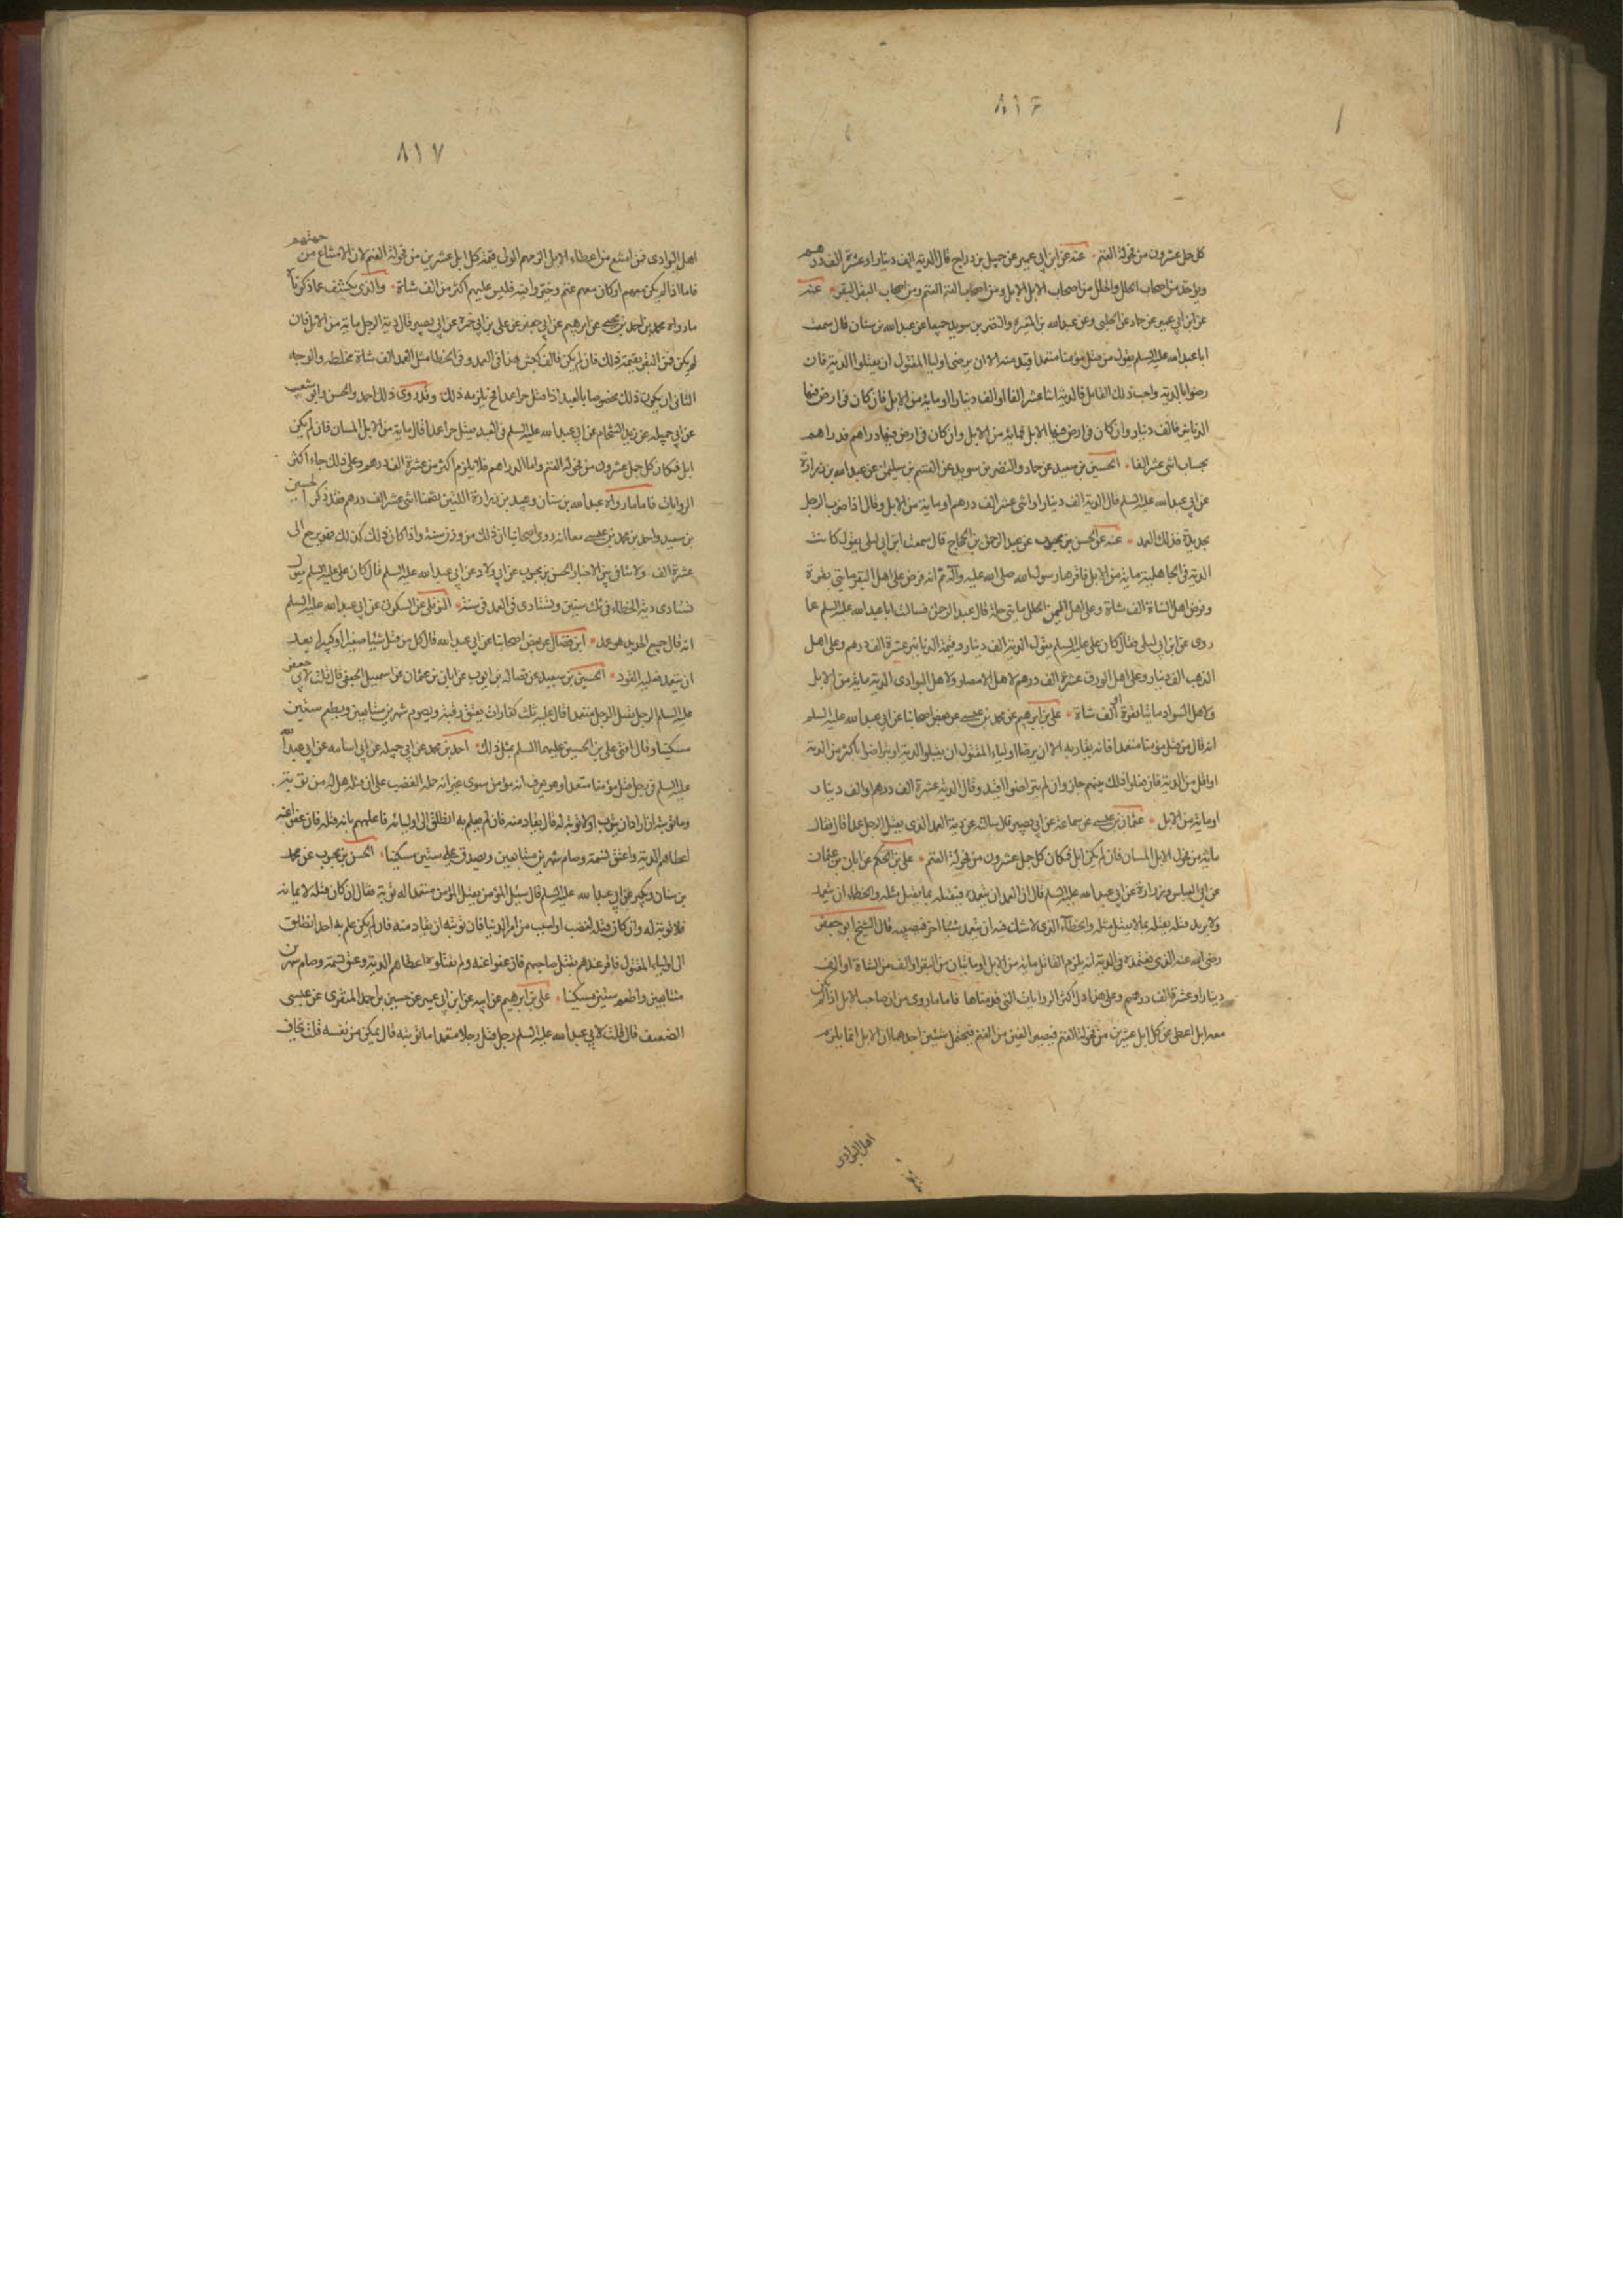 ٨١٦
كل جل عشرون من فحولة الغنم عنه عن ابن ابي عمير عن جميل بن دراج قال الدية الف دينار او عشرة الف درهم
ويؤخذ من اصحاب الحلل الحلل ومن اصحاب الابل الابل ومن اصحاب الغنم الغنم ومن اصحاب البقر البقر عنه
عن ابن ابي عمير عن حماد عن الحلبي وعن عبدالله بن المغيرة والنضر بن سويد جميعا عن عبدالله بن سنان قال سمعت
ابا عبدالله عليه السلم يقول من قتل مؤمنا متعمدا قيد منه الا ان يرضى اوليا المقتول ان يقبلوا الدية فان
رضوا بالدية واحب ذلك القاتل فالدية اثنا عشر الفا او الف دينار او ماية من الابل فان كان في ارض فيها
الدنانير فالف دينار وان كان في ارض فيها الابل فماية من الابل وان كان في ارض فيها دراهم فدراهم
بحساب اثنى عشر الفا الحسين بن سعيد عن حماد والنضر بن سويد عن القسم بن سليمن عن عبدالله بن زرارة
عن ابي عبدالله عليه السلم قال الدية الف دينار او اثنى عشر الف درهم او ماية من الابل وقال اذا ضرب الرجل
بحديدة فذلك العمد عنه عن الحسن بن محبوب عن عبد الرحمن بن الحجاج قال سمعت ابن ابي ليلى يقول كانت
الدية في الجاهلية ماية من الابل فاقرها رسول الله صلى الله عليه وآله ثم انه فرض على اهل البقر مايتى بقرة
وفرض اهل الشاة الف شاة وعلى اهل اليمن الحلل مايتى حلة قال عبد الرحمن فسالت ابا عبدالله عليه السلم عما
روى عن ابن ابي ليلى فقال كان على عليه السلم يقول الدية الف دينار وقيمة الدنانير عشرة الف درهم وعلى اهل
الذهب الف دينار وعلى اهل الورق عشرة الف درهم لاهل الامصار ولاهل البوادى الدية ماية من الابل
ولاهل السواد مائتا بقرة او الف شاة على بن ابرهيم عن محمد بن عيسى عن بعض اصحابنا عن ابي عبدالله عليه السلم
انه قال من قتل مؤمنا متعمدا فانه يقاد به الا ان يرضا اولياء المقتول ان يقبلوا الدية او يتراضوا باكثر من الدية
او اقل من الدية فان فعلوا ذلك بينهم جاز وان لم يتراضوا اقيد وقال الدية عشرة الف درهم او الف دينار
او ماية من الابل عثمان بن عيسى عن سماعة عن ابي بصير قال سالته عن دية العمد الذي يقتل الرجل عمدا قال فقال
مائة من فحولة الابل المسان فان لم يكن ابل فكان كل جل عشرون من فحولة الغنم على بن الحكم عن ابان بن عثمان
عن ابي العباس وزرارة عن ابي عبدالله عليه السلم قال ان العمد ان يتعمده فيقتله بما يقتل مثله والخطاء ان يتعمد
ولا يريد قتله يقتله بما لا يقتل مثله والخطاء الذى لا شك فيه ان يتعمد شيئا اخر فيصيبه قال الشيخ ابو جعفر
رضى الله عنه الذى نعتمده في الدية انه يلزم القاتل ماية من الابل او مائتان من البقر او الف من الشاة او الف
دينار او عشرة الف درهم وعلى هذا دل اكثر الروايات التى قدمناها فاما ما روى من ان صاحب الابل اذا لم يكن
معه ابل اعطى عن كل ابل عشرين من فحولة الغنم فيصير الفين من الغنم فيحتمل شيئين احدهما ان الابل انما يلزم
اهل البوادى
٨١٧
اهل البوادى فمن امتنع من اعطاء الابل الزمهم الولى قيمة كل ابل عشرين من فحولة الغنم لان الامتناع من جهتهم
فاما اذا لم يكن معهم ابل وكان معهم غنم وحتى فليس عليهم اكثر من الف شاة والذى يكشف عما ذكرناه
مارواه محمد بن احمد بن يحيى عن ابرهيم عن ابي جعفر عن على بن ابي حمزة عن ابي بصير قال دية الرجل ماية من الابل فان
لم يكن فمن البقر بقيمة ذلك فان لم يكن فالف كبش هذا في العمد وفي الخطا مثل العمد الف شاة مخلطه والوجه
الثانى ان يكون ذلك مخصوصا بالعبد اذا قتل حرا عمدا فح يلزمه ذلك وقد روى ذلك احمد والحسن وابو شعيب
عن ابي جميله عن زيد الشحام عن ابي عبدالله عليه السلم في العبد يقتل حرا عمدا قال ماية من الابل المسان فان لم يكن
ابل فكان كل جل عشرون من فحولة الغنم واما الدراهم فلا يلزم اكثر من عشرة الف درهم وعلى ذلك جاء اكثر
الروايات فاما ما رواه عبدالله بن سنان وعبيد بن زرارة اللذين تضمنا اثنى عشر الف درهم فقد ذكر الحسين
بن سعيد واحمد بن محمد بن عيسى معا انه روى اصحابنا ان ذلك من وزن ستة واذا كان ذلك كذلك فهو يرجع الى
عشرة الف ولا تنافى بين الاخبار الحسن بن محبوب عن ابي ولاد عن ابي عبدالله عليه السلم قال كان على عليه السلم يقول
تستادى دية الخطاء في ثلث سنين وتستادى في العمد في سنة النوفلى عن السكونى عن ابي عبدالله عليه السلم
انه قال جميع الحديد هو عمد ابن فضال عن بعض اصحابنا عن ابي عبدالله قال كل من قتل شيئا صغيرا او كبيرا بعد
ان يتعمد فعليه القود الحسين بن سعيد عن فضاله بن ايوب عن ابان بن عثمان عن اسمعيل الجعفى قال قلت لابي جعفر
عليه السلم الرجل يقتل الرجل متعمدا قال عليه ثلث كفارات يعتق رقبة ويصوم شهرين متتابعين ويطعم ستين
مسكينا وقال افتى على بن الحسين عليهما السلم بمثل ذلك احمد بن محمد عن ابي جميله عن ابي اسامه عن ابي عبدالله
عليه السلم في رجل قتل مؤمنا متعمدا وهو يعرف انه مؤمن سوى غير انه حمله الغضب على ان قتله هل له من توبة
وما توبته ان اراد ان يتوب او لا توبة له قال يقاد منه فان لم يعلم به انطلق الى اوليائه فاعلمهم بانه قتله فان عفى عنه
اعطاهم الدية واعتق نسمة وصام شهرين متتابعين وتصدق على ستين مسكينا الحسن بن محبوب عن محمد
بن سنان وبكير عن ابي عبدالله عليه السلم قال سئل المؤمن يقتل المؤمن متعمدا له توبة فقال ان كان قتله لايمانه
فلا توبة له وان كان قتله لغضب او لسبب من امر الدنيا فان توبته ان يقاد منه فان لم يكن علم به احد انطلق
الى اولياء المقتول فاقر عندهم بقتل صاحبهم فان عفوا عنه ولم يقتلوه اعطاهم الدية وعتق نسمة وصام شهرين
متتابعين واطعم ستين مسكينا على بن ابرهيم عن ابيه عن ابن ابي عمير عن حسين بن احمد المنقرى عن عيسى
الضعيف قال قلت لابي عبدالله عليه السلم رجل قتل رجلا متعمدا ما توبته قال يمكن من نفسه قلت يخاف